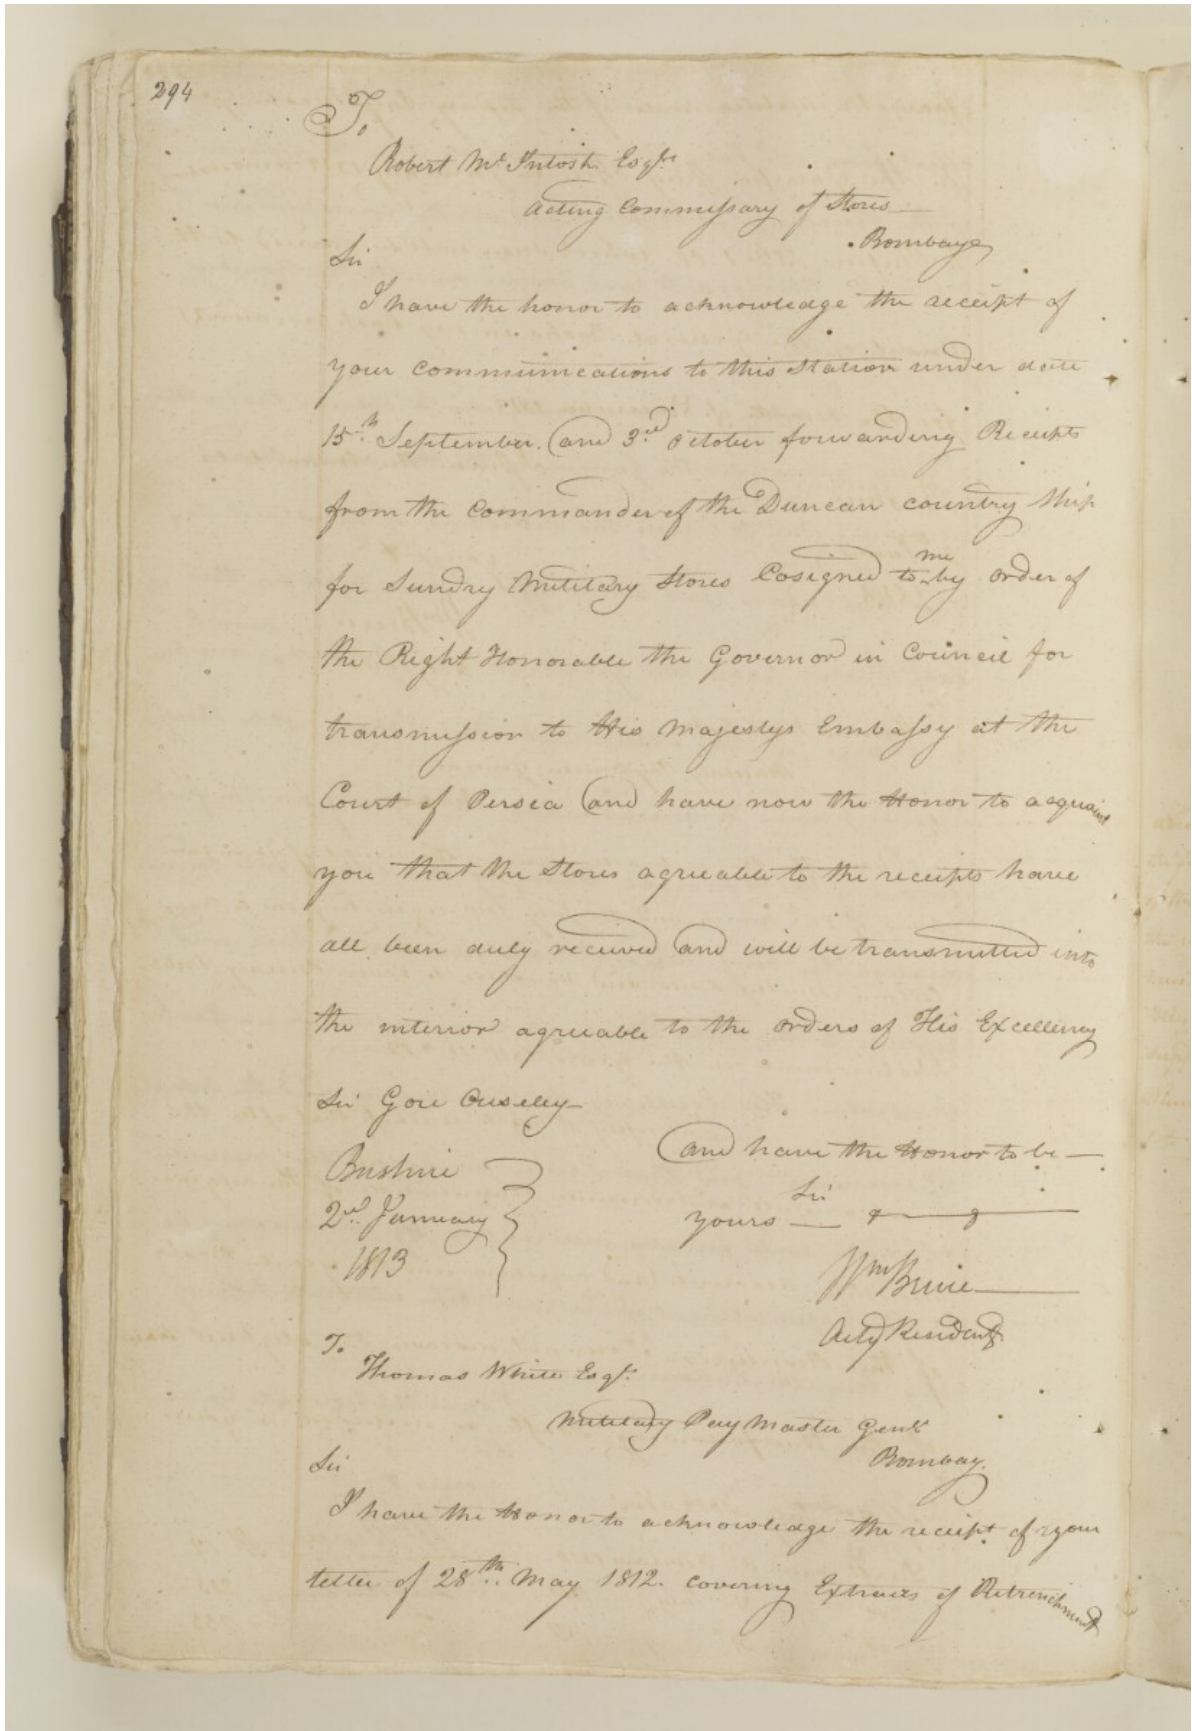 294
To
Robert Mc Intosh Esqr.
Acting Commissary of Stores
Bombay
Sir
I have the honor to acknowledge the receipt of
your communications to this Station under date
15th September. and 3rd October forwarding Receipts
from the Commander of the Duncan country Ship
for Sundry Military Stores Cosigned to me by order of
the Right Honorable the Governor in Council for
transmission to His Majestys Embassy at the
Court of Persia and have now the Honor to acquaint
you that the Stores agreable to the receipts have
all been duly received and will be transmitted into
the interior agreable to the orders of His Excellency
Sir Gore Ouseley
and have the Honor to be
Sir
yours
Bushire
2nd. January
1813
Wm Bruce
Actg Resident
To
Thomas White Esqr.
Military Pay Master Genl
Bombay.
Sir
I have the Honor to acknowledge the receipt of your
letter of 28th. May 1812. covering Extracts of Retrenchment